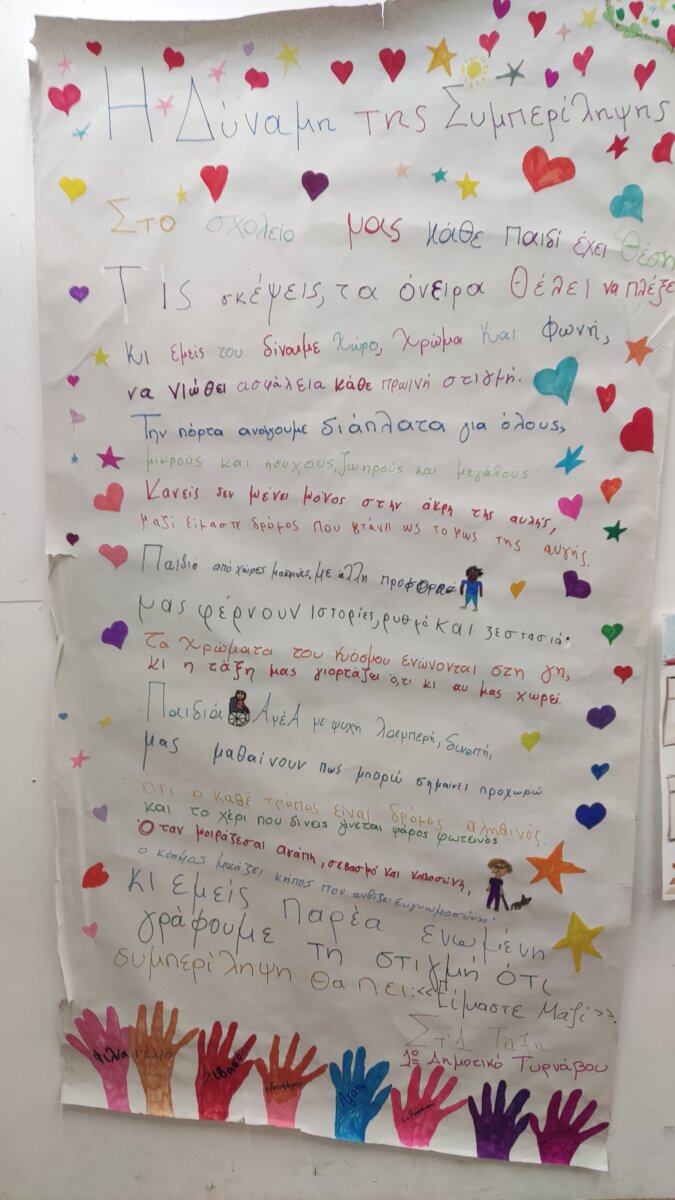 Η Δύναμη της Συμπερίληψης
Στο σχολείο μας κάθε παιδί έχει θέση
Τις σκέψεις, τα όνειρα θέλει να πλέξε
κι εμείς του δίνουμε χώρο, χρώμα και φωνή,
να νιώθει ασφάλεια κάθε πρωινή στιγμή.
Την πόρτα ανοίγουμε διάπλατα για όλους,
μικρούς και ήσυχους, ζωηρούς και μεγάλους.
Κανείς δεν μένει μόνος στην άκρη της αυλής,
μαζί είμαστε δρόμος που φτάνει ως το φως της αυγής.
Παιδιά από χώρες μακρινές, με άλλη προφορά
μας φέρνουν ιστορίες, ρυθμό και ζεστασιά.
Τα χρώματα του κόσμου ενώνονται στη γη,
κι η τάξη μας γιορτάζει ό,τι κι αν μας χωρεί.
Παιδιά ΑμέΑ με ψυχή λαμπερή, δυνατή,
μας μαθαίνουν πως μπορώ σημαίνει προχωρώ
ότι ο κάθε τρόπος είναι δρόμος αληθινός.
και το χέρι που δίνεις γίνεται φάρος φωτεινός
Όταν μοιράζεσαι αγάπη, σεβασμό και καλοσύνη,
ο κόσμος μοιάζει κήπος που ανθίζει ευγνωμοσύνη.
κι εμείς παρέα ενωμένη
γράφουμε τη στιγμή ότι
συμπερίληψη θα πει: «Είμαστε Μαζί».
Στ'1 Τάξη
1ο Δημοτικό Τυρνάβου
Φιλία γέλιο Σεβασμό Αγάπη